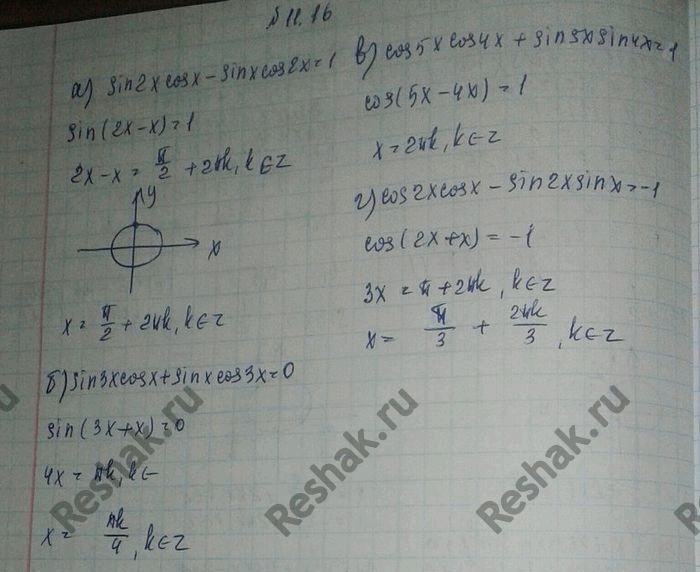 № 11.16
а) sin2x cosx – sinx cos2x = 1
sin(2x–x) = 1
2x–x = π/2 + 2πk, k∈z
y
x
x = π/2 + 2πk, k∈z
б) sin3x cosx + sinx cos3x = 0
sin(3x+x) = 0
4x = πk, k∈
x = πk/4, k∈z
в) cos5x cos4x + sin5x sin4x = 1
cos(5x–4x) = 1
x = 2πk, k∈z
г) cos2x cosx – sin2x sinx = –1
cos(2x+x) = –1
3x = π + 2πk, k∈z
x = π/3 + 2πk/3, k∈z
Reshak.ru
Reshak.ru
Reshak.ru